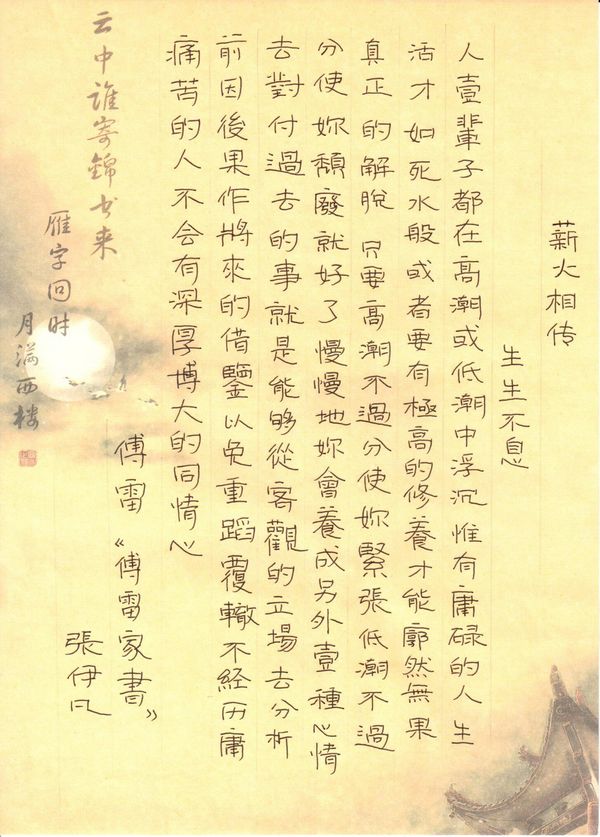 薪火相传
生生不息
人壹輩子都在高潮或低潮中浮沉惟有庸碌的人生
活才如死水般或者要有極高的修養才能廓然無果
真正的解脫只要高潮不過分使妳緊張低潮不過
分使妳頹廢就好了慢慢地妳會養成另外壹種心情
去對付過去的事就是能够從客觀的立場去分析
前因後果作將來的借鑒以免重蹈覆轍不經历庸
痛苦的人不会有深厚博大的同情心
傅雷《傅雷家書》
張伊凡
云中誰寄錦书来
雁字回时
月满西楼